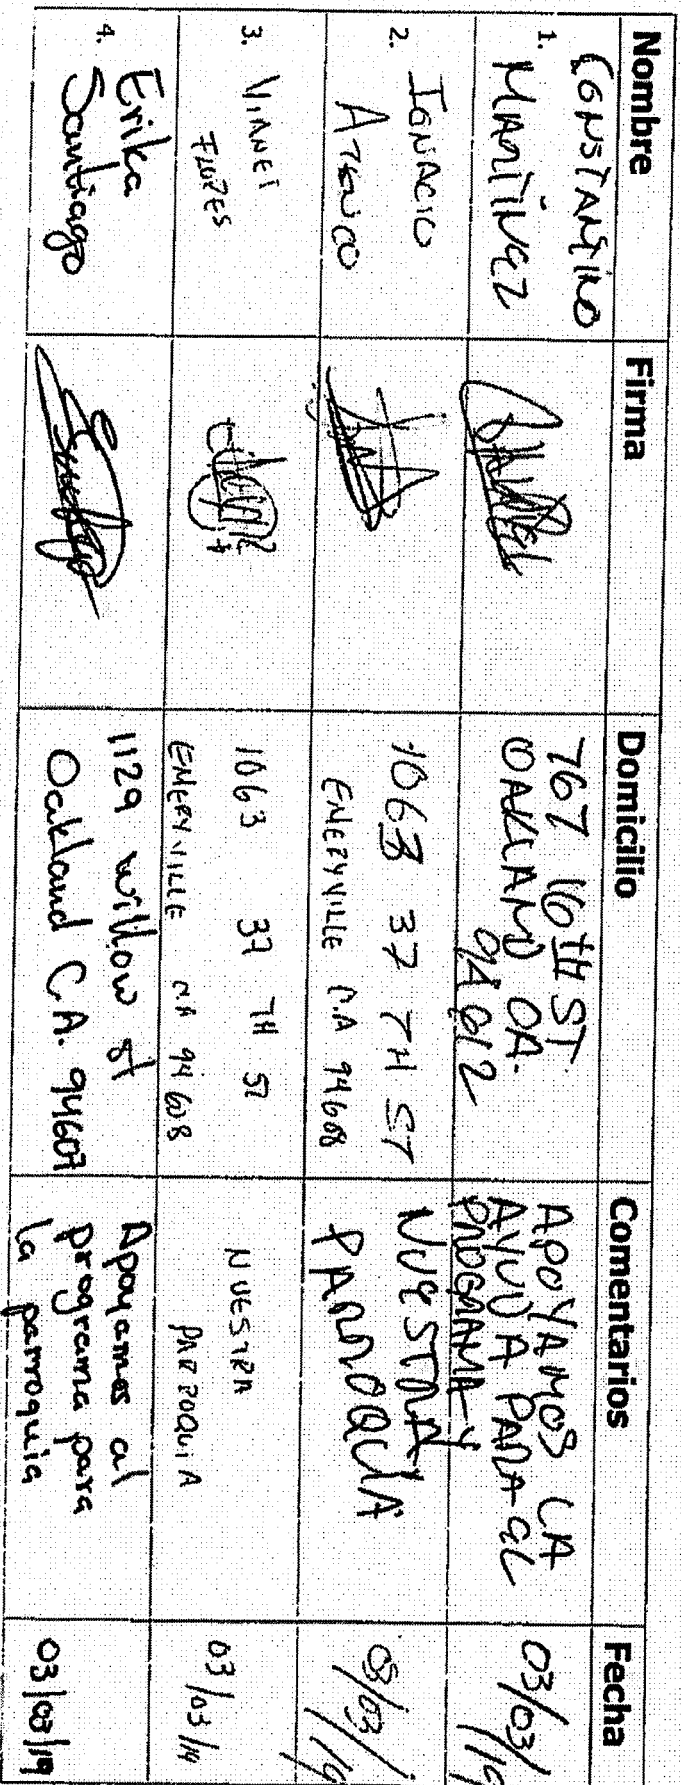 Nombre Firma Domicilio Comentarios Fecha
1. CONSTANTINO
MARTINEZ
767 16TH ST
OAKLAND CA.
94612
APOYAMOS LA
AYUDA PARA EL
PROGRAMA Y
03/03/19
2. IGNACIO
1063 37 TH ST
EMERYVILLE C.A 94608
NUESTRA
PARROQUIA
03/03/19
3. VIANEI
FLORES
1063 37 TH ST
EMERYVILLE CA 94608
NUESTRA
PARROQUIA
03/03/19
4. Erika
Santiago
1129 willow st
Oakland C.A. 94607
Apoyamos al
programa para
la parroquia
03/03/19